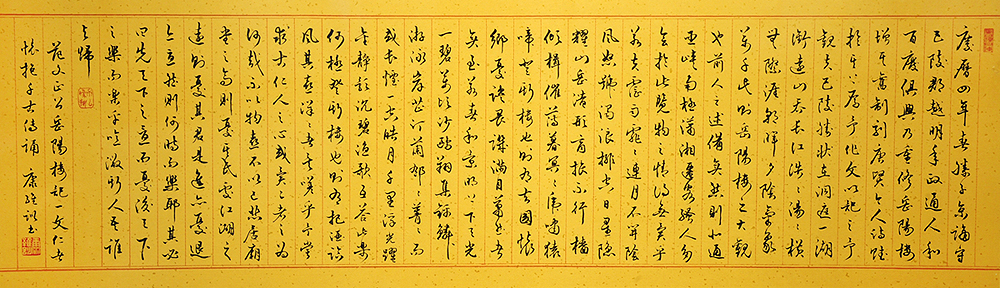 慶曆四年春滕子京謫守
巴陵郡越明年政通人和
百廢俱興乃重修岳陽樓
增其舊制刻唐賢今人詩賦
於其上屬予作文以記之予
觀夫巴陵勝狀在洞庭一湖
銜遠山吞長江浩浩湯湯橫
無際涯朝暉夕陰氣象
萬千此則岳陽樓之大觀
也前人之述備矣然則北通
巫峽南極瀟湘遷客騷人多
會於此覽物之情得無異乎
若夫霪雨霏霏連月不開陰
風怒號濁浪排空日星隱
耀山岳潛形商旅不行檣
傾楫摧薄暮冥冥虎嘯猿
啼登斯樓也則有去國懷
鄉憂讒畏譏滿目蕭然者
矣至若春和景明上下天光
一碧萬頃沙鷗翔集錦鱗
游泳岸芷汀蘭郁郁菁菁而
或長煙一空皓月千里浮光躍
金靜影沉璧漁歌互答此樂
何極登斯樓也則有把酒臨
風其喜洋洋者矣嗟夫予嘗
求古仁人之心或異二者之為
何哉不以物喜不以己悲居廟
堂之高則憂其民處江湖之
遠則憂其君是進亦憂退
亦憂然則何時而樂耶其必
曰先天下之憂而憂後天下
之樂而樂乎噫微斯人吾誰
與歸
范文正公岳陽樓記一文仁者
懷抱千古傳誦 康書